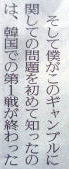 そして僕がこのギャンブルに
関しての問題を初めて知ったの
は、韓国での第1戦が終わった